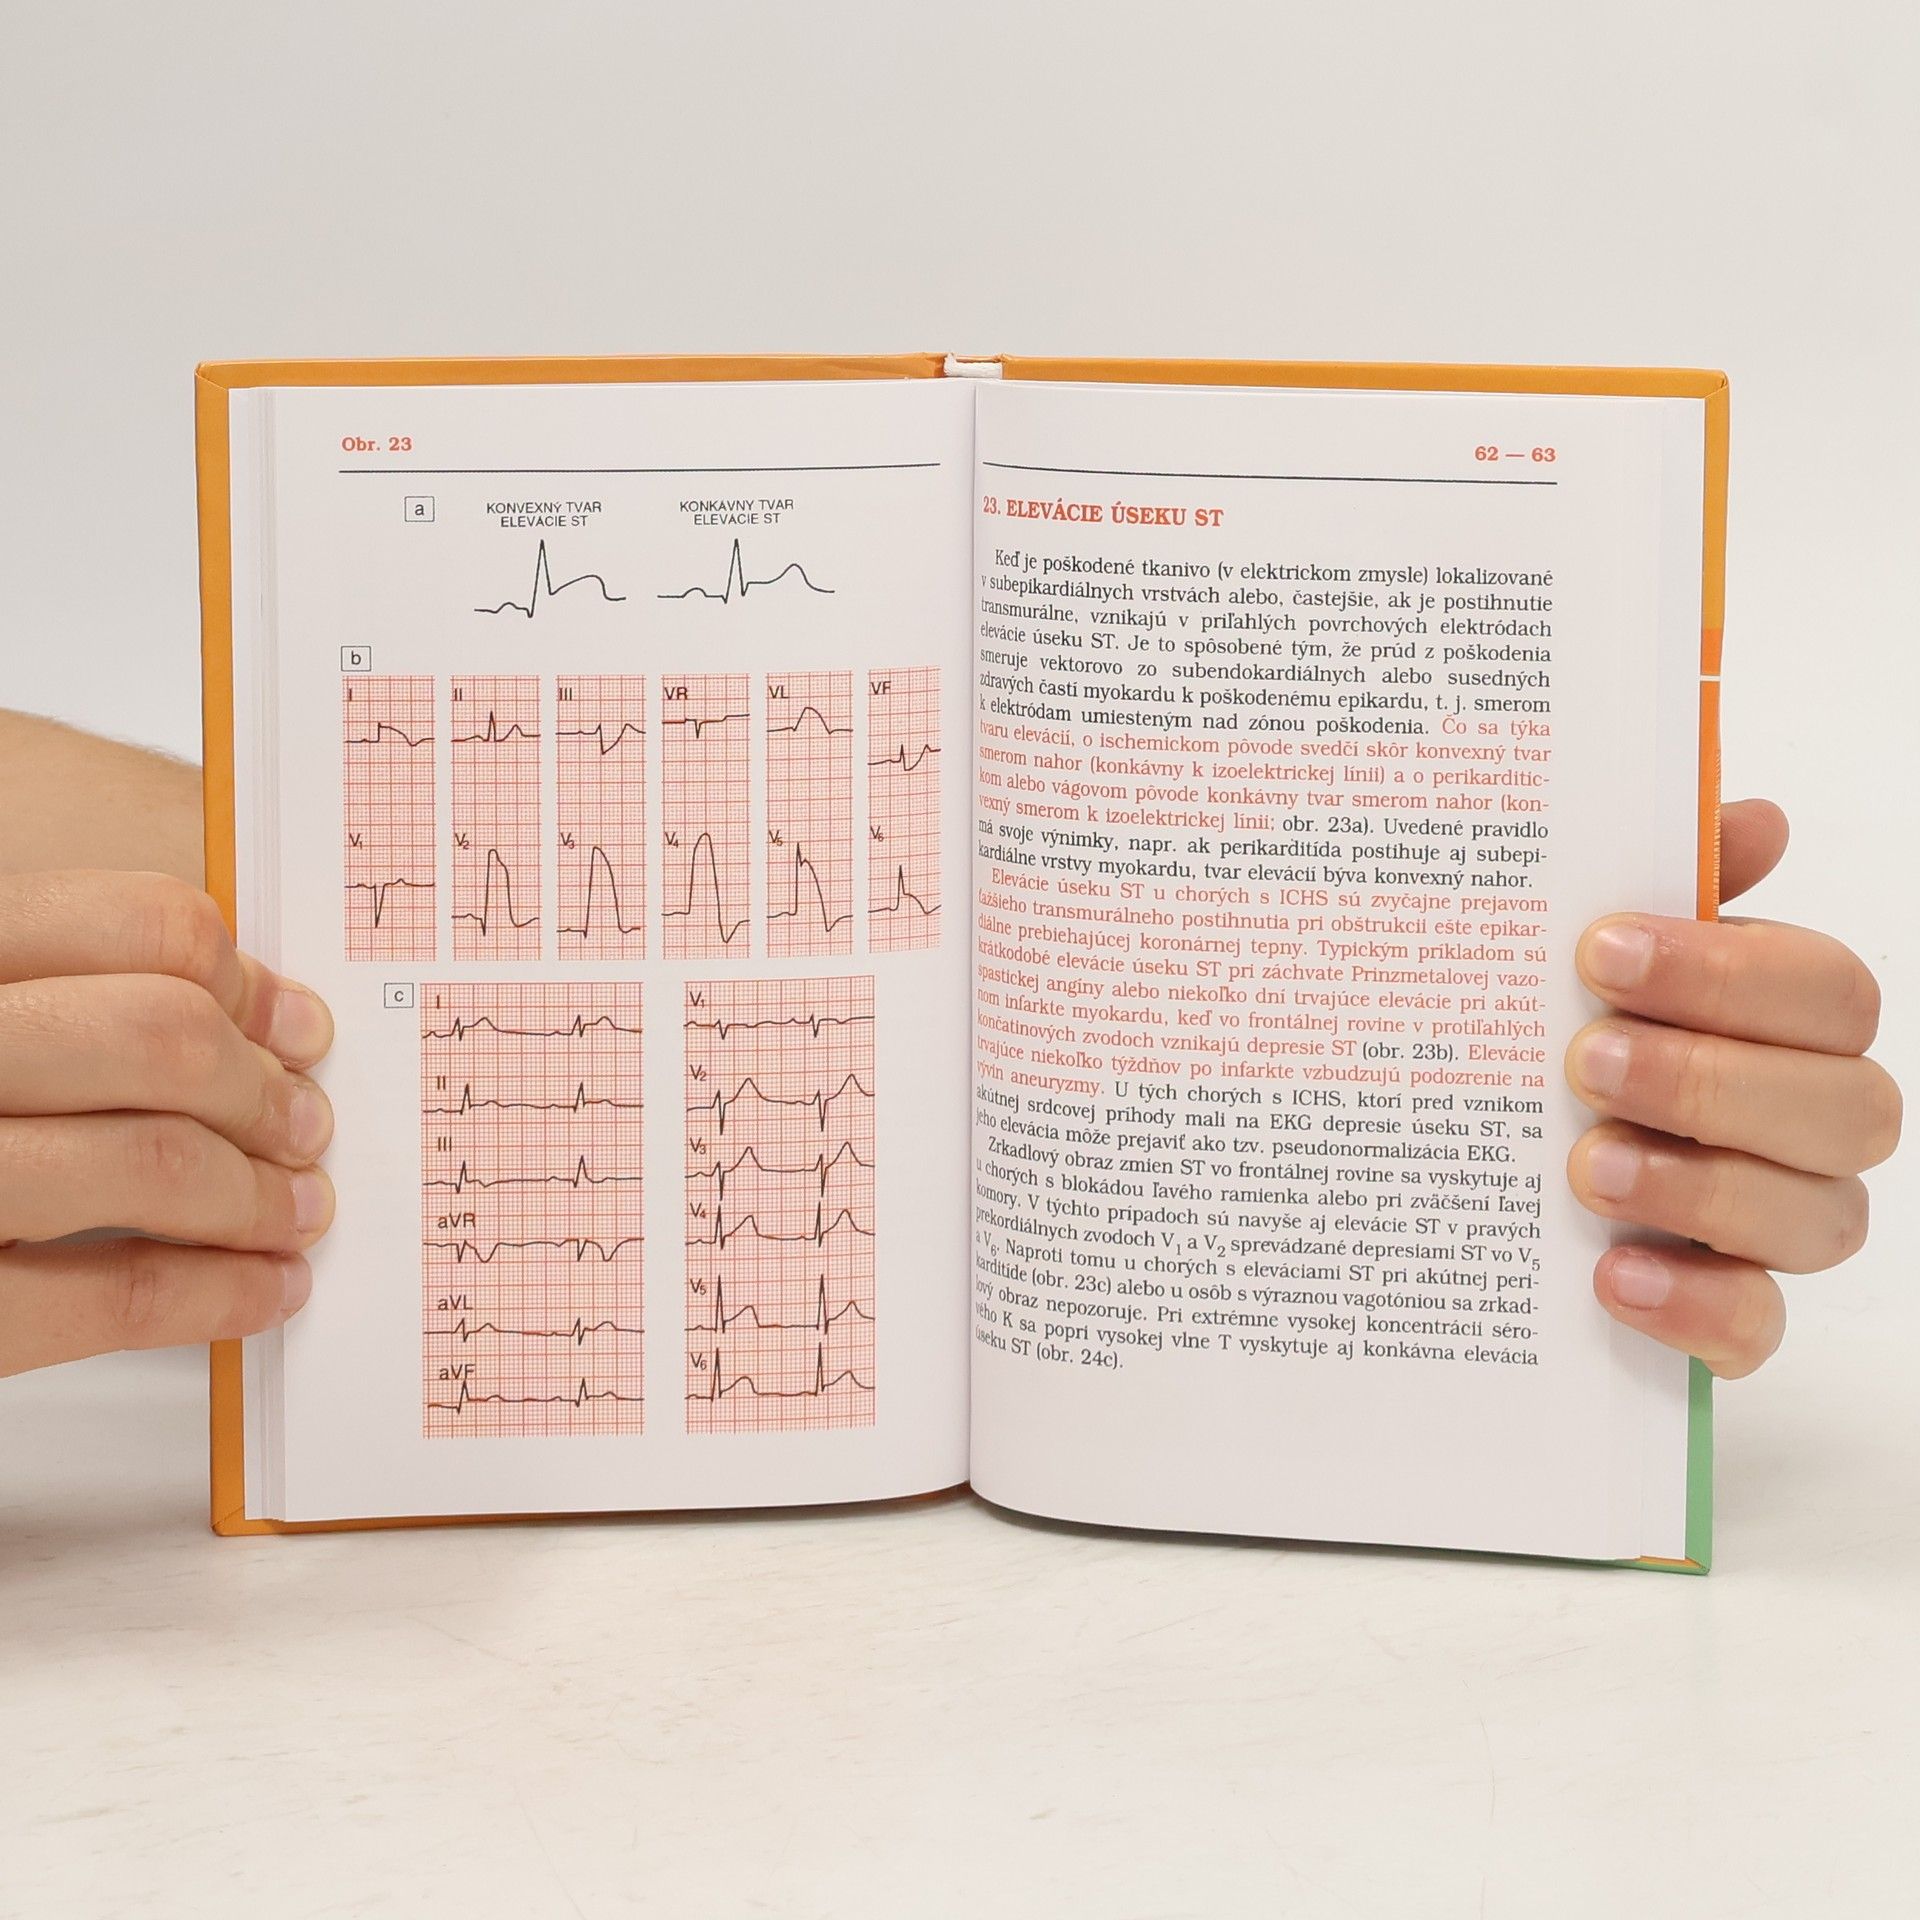 Obr. 23
a
KONVEXNÝ TVAR
ELEVÁCIE ST
KONKÁVNY TVAR
ELEVÁCIE ST
b
I
II
III
VR
VL
VF
V1
V2
V3
V4
V5
V6
c
I
II
III
aVR
aVL
aVF
V1
V2
V3
V4
V5
V6
62 — 63
23. ELEVÁCIE ÚSEKU ST
Keď je poškodené tkanivo (v elektrickom zmysle) lokalizované
v subepikardiálnych vrstvách alebo, častejšie, ak je postihnutie
transmurálne, vznikajú v priľahlých povrchových elektródach
elevácie úseku ST. Je to spôsobené tým, že prúd z poškodenia
smeruje vektorovo zo subendokardiálnych alebo susedných
zdravých častí myokardu k poškodenému epikardu, t. j. smerom
k elektródam umiesteným nad zónou poškodenia. Čo sa týka
tvaru elevácií, o ischemickom pôvode svedčí skôr konvexný tvar
smerom nahor (konkávny k izoelektrickej línii) a o perikarditic-
kom alebo vágovom pôvode konkávny tvar smerom nahor (kon-
vexný smerom k izoelektrickej línii; obr. 23a). Uvedené pravidlo
má svoje výnimky, napr. ak perikarditída postihuje aj subepi-
kardiálne vrstvy myokardu, tvar elevácií býva konvexný nahor.
Elevácie úseku ST u chorých s ICHS sú zvyčajne prejavom
ťažšieho transmurálneho postihnutia pri obštrukcii ešte epikar-
diálne prebiehajúcej koronárnej tepny. Typickým príkladom sú
krátkodobé elevácie úseku ST pri záchvate Prinzmetalovej vazo-
spastickej angíny alebo niekoľko dní trvajúce elevácie pri akút-
nom infarkte myokardu, keď vo frontálnej rovine v protiľahlých
končatinových zvodoch vznikajú depresie ST (obr. 23b). Elevácie
trvajúce niekoľko týždňov po infarkte vzbudzujú podozrenie na
vývin aneuryzmy. U tých chorých s ICHS, ktorí pred vznikom
akútnej srdcovej príhody mali na EKG depresie úseku ST, sa
jeho elevácia môže prejaviť ako tzv. pseudonormalizácia EKG.
Zrkadlový obraz zmien ST vo frontálnej rovine sa vyskytuje aj
u chorých s blokádou ľavého ramienka alebo pri zväčšení ľavej
komory. V týchto prípadoch sú navyše aj elevácie ST v pravých
prekordiálnych zvodoch V1 a V2 sprevádzané depresiami ST vo V5
a V6. Naproti tomu u chorých s eleváciami ST pri akútnej peri-
karditíde (obr. 23c) alebo u osôb s výraznou vagotóniou sa zrkad-
lový obraz nepozoruje. Pri extrémne vysokej koncentrácii séro-
vého K sa popri vysokej vlne T vyskytuje aj konkávna elevácia
úseku ST (obr. 24c).